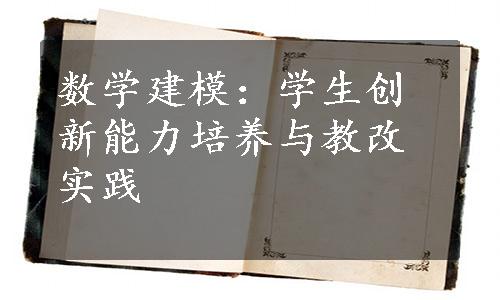 数学建模：学生创
新能力培养与教改
实践